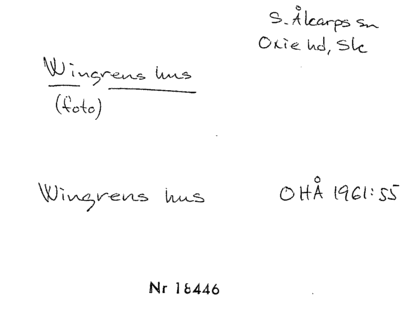 S. Åkarps sn
Oxie hd, Sk
Wingrens hus
(foto)
Wingrens hus
OHÅ 1961:55
Nr 18446